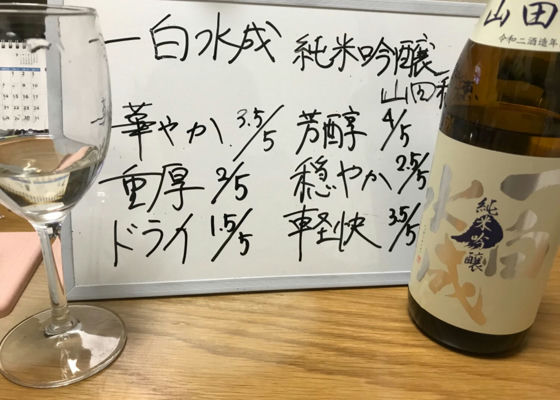 一白水成 純米吟醸
山田
華やか 3.5/5 芳醇 4/5
重厚 2/5 穏やか 2.5/5
ドライ 1.5/5 軽快 3.5/5
山田
令和二酒造年
一白
水成
純米吟醸